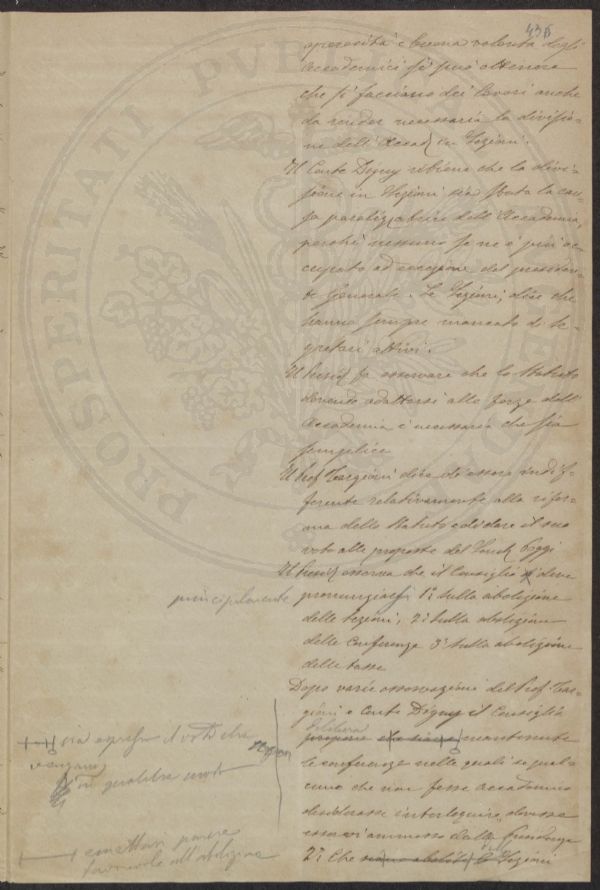 435
operosità e buona volontà degli
Accademici si può ottenere
che si facciano dei lavori anche
da render necessaria la divisio-
ne dell'Accad. in Sezioni.
Il Conte Digny ritiene che la divi-
sione in Sezioni sia stata la cau-
sa paralizzatrice dell'Accademia,
perché nessuno se ne è più oc-
cupato ad eccezione del presiden-
te Generale. Le Sezioni, dice che
hanno sempre mancato di Se-
gretari attivi.
Il Presid. fa osservare che lo Statuto
dovendo adattarsi alle forze dell'
Accademia è necessario che sia
semplice
Il Prof Targioni dice d'essere indif-
ferente relativamente alla rifor-
ma dello Statuto e di dare il suo
voto alle proposte del March. Poggi
Il Presid. osserva che il Consiglio deve
principalmente pronunziarsi 1° sulla abolizione
delle Sezioni, 2° sulla abolizione
delle Conferenze 3° sulla abolizione
delle tasse
Dopo varie osservazioni del Prof. Tar-
gioni e Conte Digny il Consiglio
delibera
propone che siano mantenute
le conferenze nelle quali se qual-
cuno che non fosse accademico
desiderasse interloquire, dovesse
esservi ammesso dalla Presidenza
2° Che siano abolite le Sezioni
sia espresso il voto che
vengano
in qualche modo
emettere parere
favorevole all'abolizione
PROSPERITATI PVBLICAE